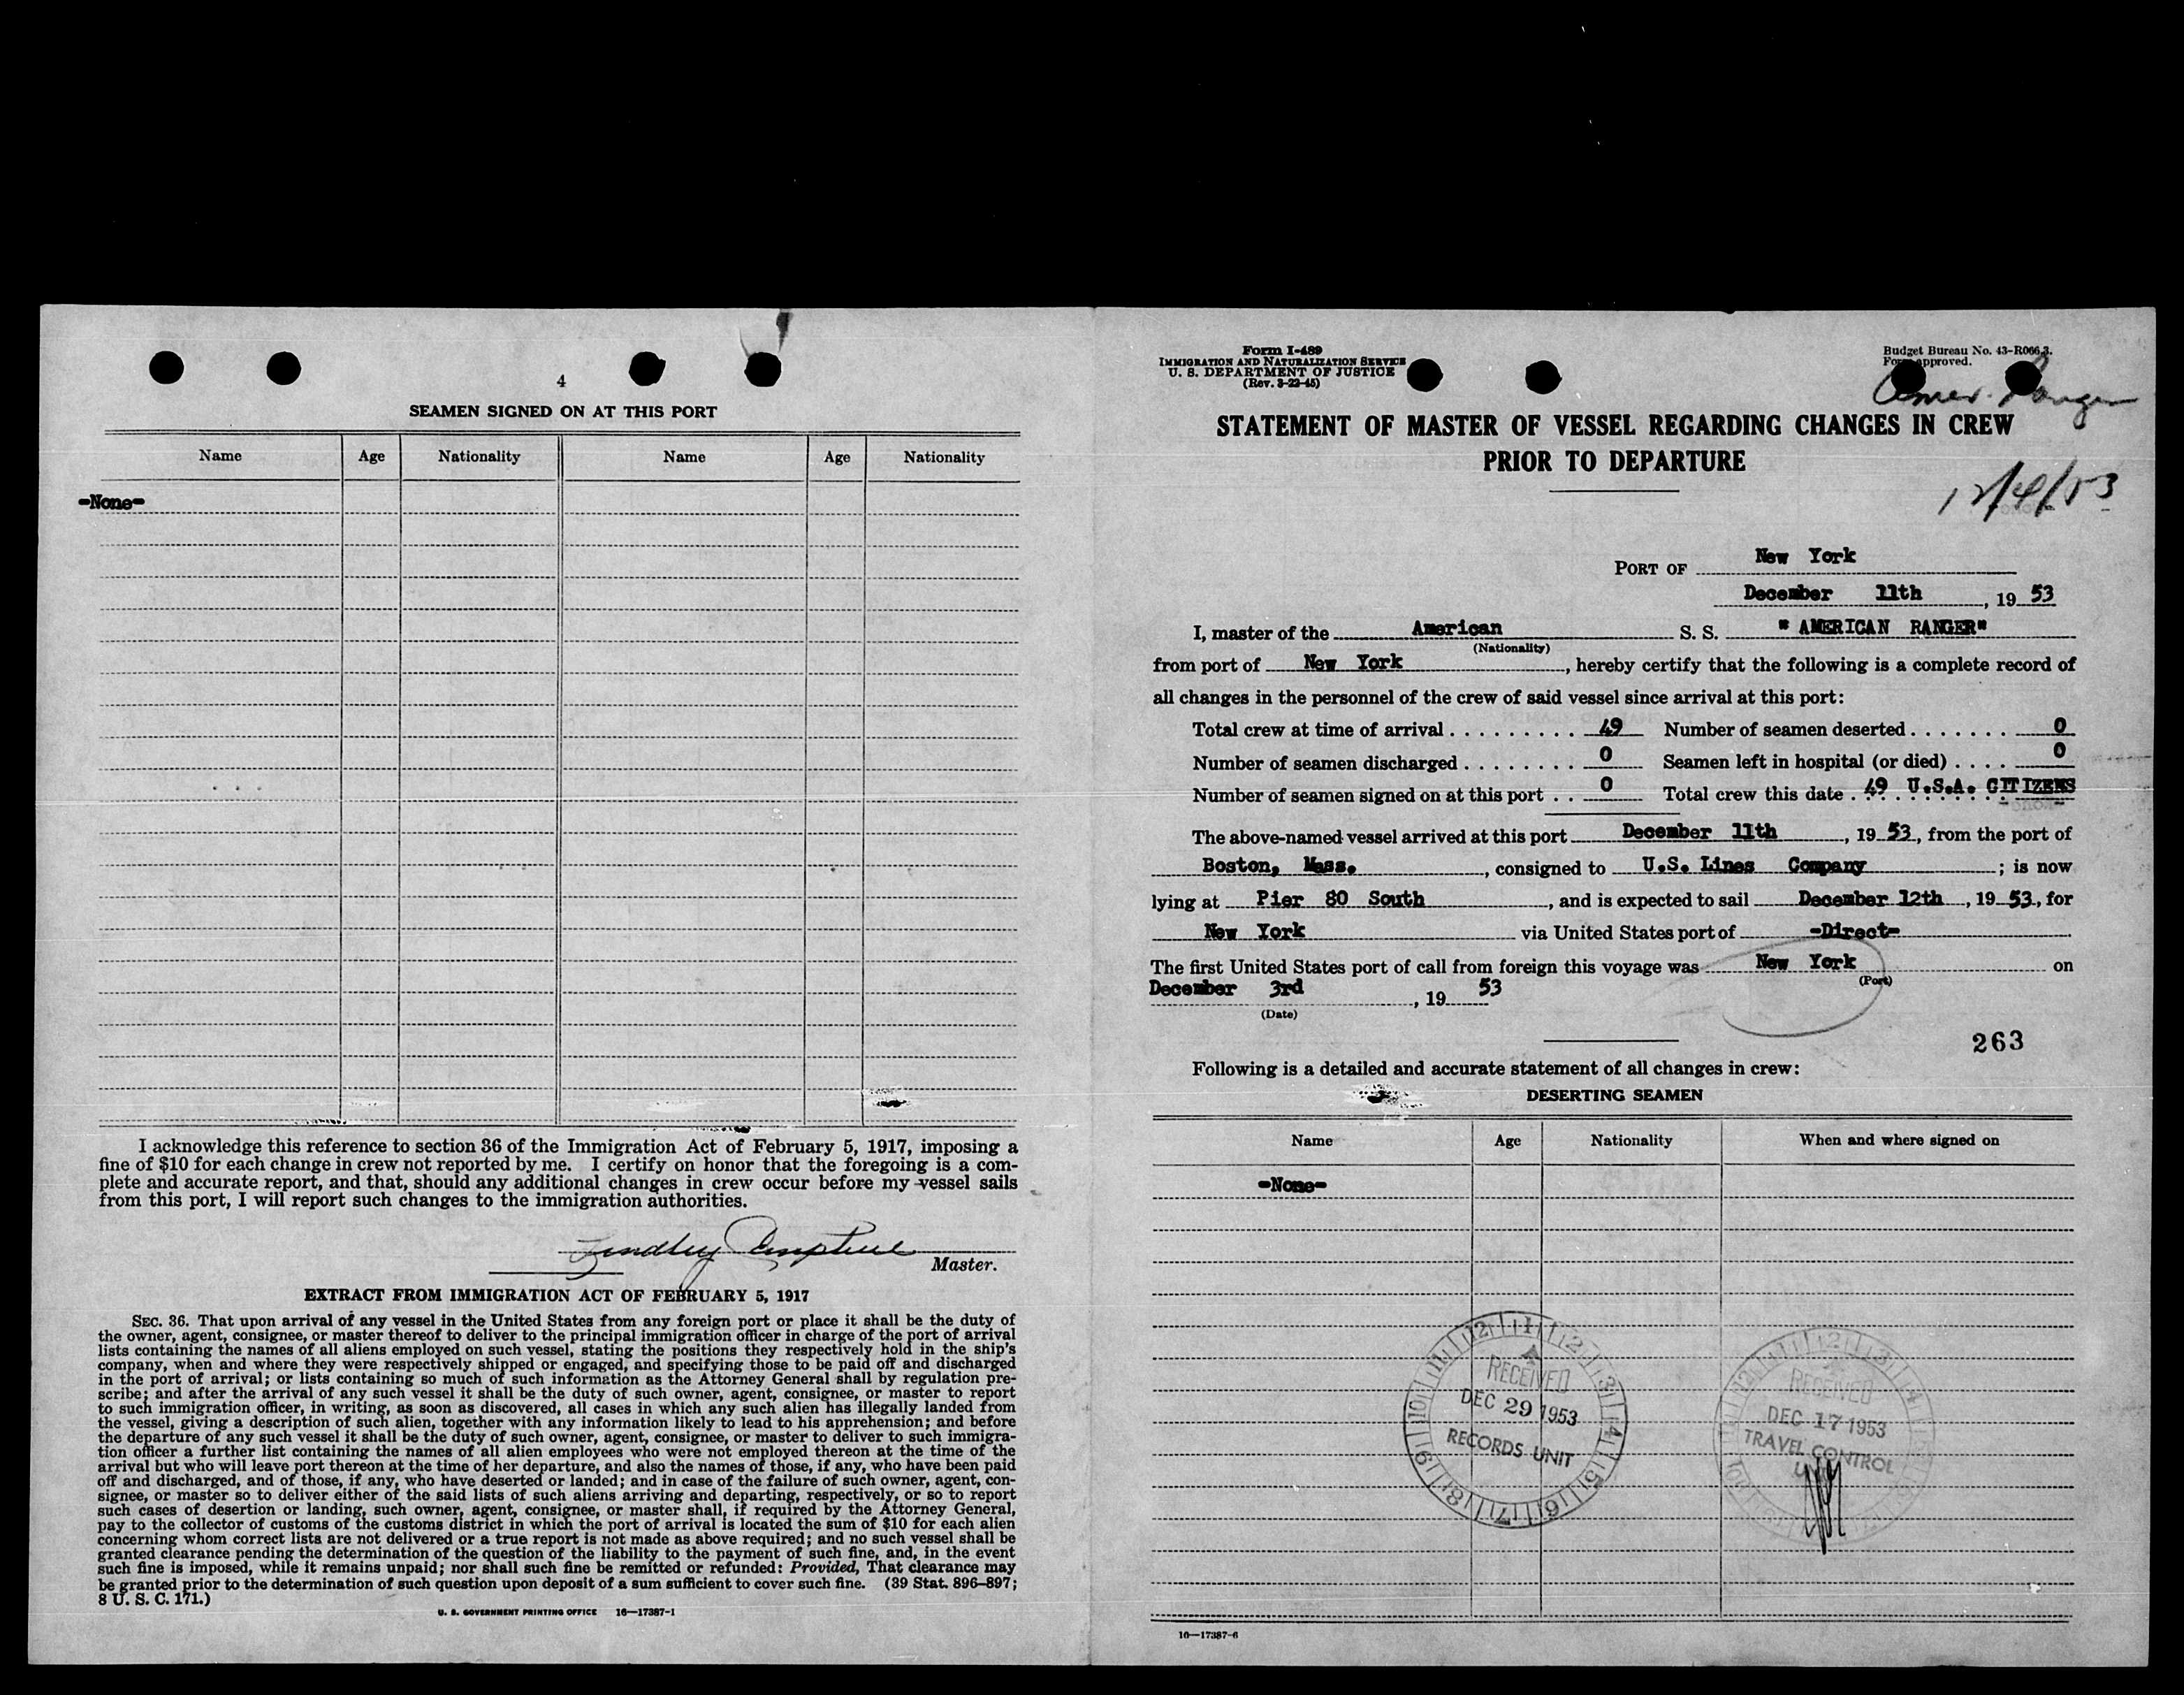 4
SEAMEN SIGNED ON AT THIS PORT
Name Age Nationality Name Age Nationality
-None-
I acknowledge this reference to section 36 of the Immigration Act of February 5, 1917, imposing a
fine of $10 for each change in crew not reported by me. I certify on honor that the foregoing is a com-
plete and accurate report, and that, should any additional changes in crew occur before my vessel sails
from this port, I will report such changes to the immigration authorities.
Master.
EXTRACT FROM IMMIGRATION ACT OF FEBRUARY 5, 1917
SEC. 36. That upon arrival of any vessel in the United States from any foreign port or place it shall be the duty of
the owner, agent, consignee, or master thereof to deliver to the principal immigration officer in charge of the port of arrival
lists containing the names of all aliens employed on such vessel, stating the positions they respectively hold in the ship's
company, when and where they were respectively shipped or engaged, and specifying those to be paid off and discharged
in the port of arrival; or lists containing so much of such information as the Attorney General shall by regulation pre-
scribe; and after the arrival of any such vessel it shall be the duty of such owner, agent, consignee, or master to report
to such immigration officer, in writing, as soon as discovered, all cases in which any such alien has illegally landed from
the vessel, giving a description of such alien, together with any information likely to lead to his apprehension; and before
the departure of any such vessel it shall be the duty of such owner, agent, consignee, or master to deliver to such immigra-
tion officer a further list containing the names of all alien employees who were not employed thereon at the time of the
arrival but who will leave port thereon at the time of her departure, and also the names of those, if any, who have been paid
off and discharged, and of those, if any, who have deserted or landed; and in case of the failure of such owner, agent, con-
signee, or master so to deliver either of the said lists of such aliens arriving and departing, respectively, or so to report
such cases of desertion or landing, such owner, agent, consignee, or master shall, if required by the Attorney General,
pay to the collector of customs of the customs district in which the port of arrival is located the sum of $10 for each alien
concerning whom correct lists are not delivered or a true report is not made as above required; and no such vessel shall be
granted clearance pending the determination of the question of the liability to the payment of such fine, and, in the event
such fine is imposed, while it remains unpaid; nor shall such fine be remitted or refunded: Provided, That clearance may
be granted prior to the determination of such question upon deposit of a sum sufficient to cover such fine. (39 Stat. 896–897;
8 U. S. C. 171.)
U. S. GOVERNMENT PRINTING OFFICE 16—17387-1
Form I-489
IMMIGRATION AND NATURALIZATION SERVICE
U. S. DEPARTMENT OF JUSTICE
(Rev. 3-22-45)
Budget Bureau No. 43-R066.3.
Form approved.
Amer. Ranger
STATEMENT OF MASTER OF VESSEL REGARDING CHANGES IN CREW
PRIOR TO DEPARTURE
12/4/53
PORT OF New York
December 11th, 19 53
I, master of the American S. S. "AMERICAN RANGER"
(Nationality)
from port of New York, hereby certify that the following is a complete record of
all changes in the personnel of the crew of said vessel since arrival at this port:
Total crew at time of arrival 49 Number of seamen deserted 0
Number of seamen discharged 0 Seamen left in hospital (or died) 0
Number of seamen signed on at this port 0 Total crew this date 49 U.S.A. CITIZENS
The above-named vessel arrived at this port December 11th, 19 53, from the port of
Boston, Mass., consigned to U.S. Lines Company; is now
lying at Pier 80 South, and is expected to sail December 12th, 19 53, for
New York via United States port of -Direct-
The first United States port of call from foreign this voyage was New York on
(Port)
December 3rd, 19 53
(Date)
263
Following is a detailed and accurate statement of all changes in crew:
DESERTING SEAMEN
Name Age Nationality When and where signed on
-None-
RECEIVED
DEC 29 1953
RECORDS UNIT
RECEIVED
DEC 17 1953
TRAVEL CONTROL
16—17387-6